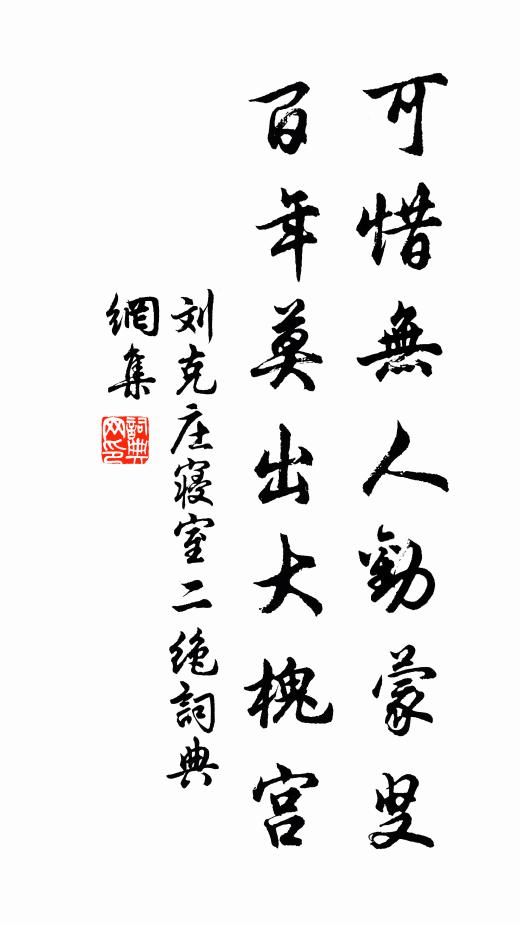 可惜無人勸蒙叟
百年莫出大槐宮
刘克庄寝室二絶詞典
網集
詞典網印